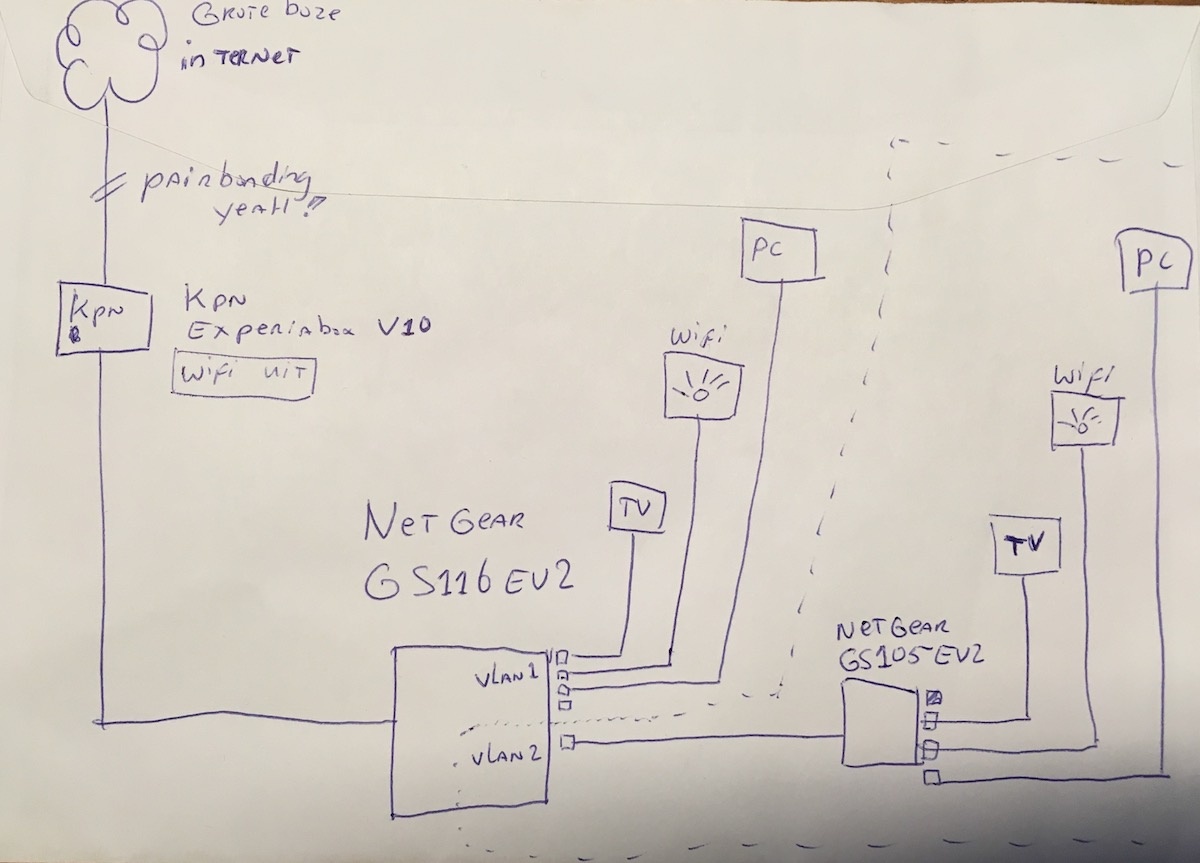 Grote boze
inTERNET
PAirbonding
yeaH!?
KPN
KPN
Experiabox V10
Wifi uit
PC
PC
Wifi
Wifi
TV
TV
NeTGeaR
GS116EV2
NeTGeaR
GS105EV2
VLAN1
VLAN2